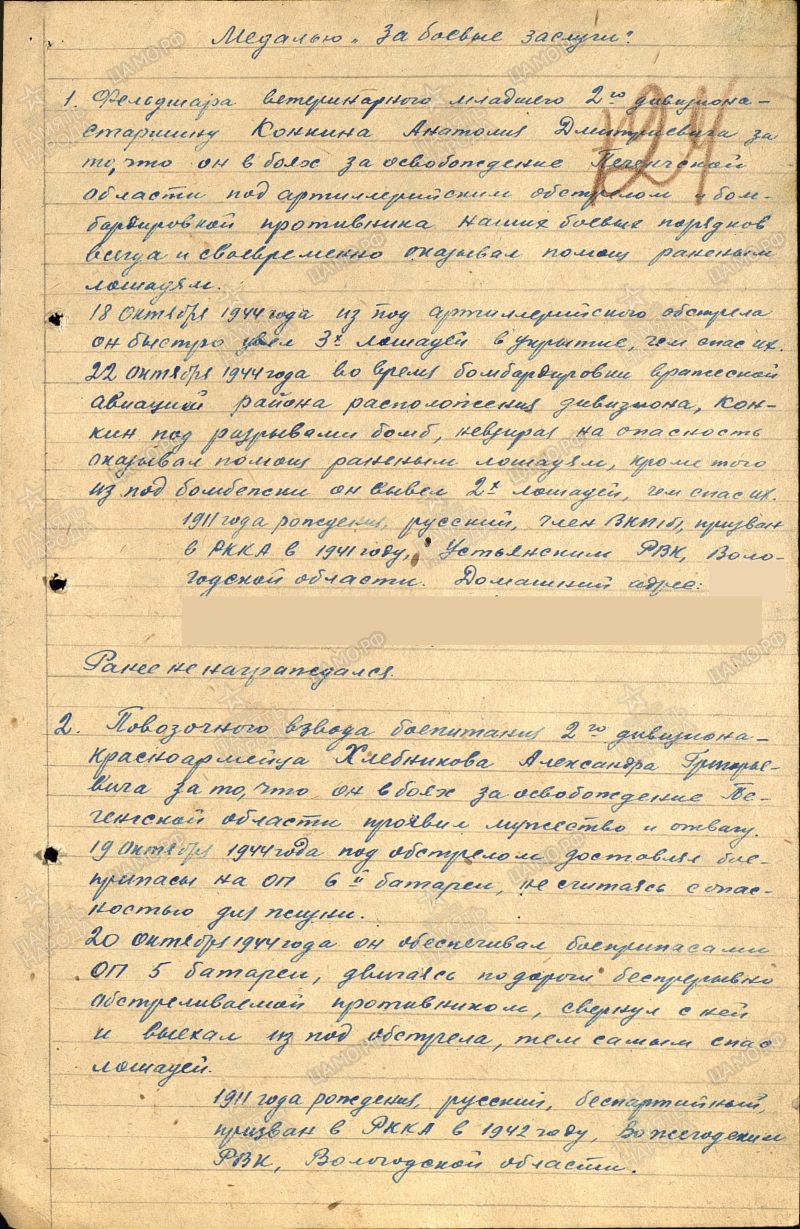 Медалью „За боевые заслуги".
124
1. Фельдшара ветеринарного младшего 2го дивизиона –
старшину Конкина Анатолия Дмитриевича за
то, что он в боях за освобождение Печенгской
области под артиллерийским обстрелом и бом-
бардировкой противника наших боевых порядков
всегда и своевременно оказывал помощ раненым
лошадям.
18 октября 1944 года из под артиллерийского обстрела
он быстро увел 3х лошадей в укрытие, чем спас их.
22 октября 1944 года во время бомбардировки вражеской
авиацией района расположения дивизиона, Кон-
кин под разрывами бомб, невзирая на опасность
оказывал помощ раненым лошадям, кроме того
из под бомбежки он вывел 2х лошадей, чем спас их.
1911 года рождения, русский, член ВКП(б), призван
в РККА в 1941 году, Устьянским РВК, Воло-
годской области. Домашний адрес:
Ранее не награждался.
2. Повозочного взвода боепитания 2го дивизиона –
красноармейца Хлебникова Александра Григорье-
вича за то, что он в боях за освобождение Пе-
ченгской области проявил мужество и отвагу.
19 октября 1944 года под обстрелом доставлял бое-
припасы на ОП 6й батареи, не считаясь с опас-
ностью для жизни.
20 октября 1944 года он обеспечивал боеприпасами
ОП 5 батареи, двигаясь по дороги беспрерывно
обстреливаемой противником, свернул с ней
и выехал из под обстрела, тем самым спас
лошадей.
1911 года рождения, русский, беспартийный,
призван в РККА в 1942 году, Вожегодским
РВК, Вологодской области.